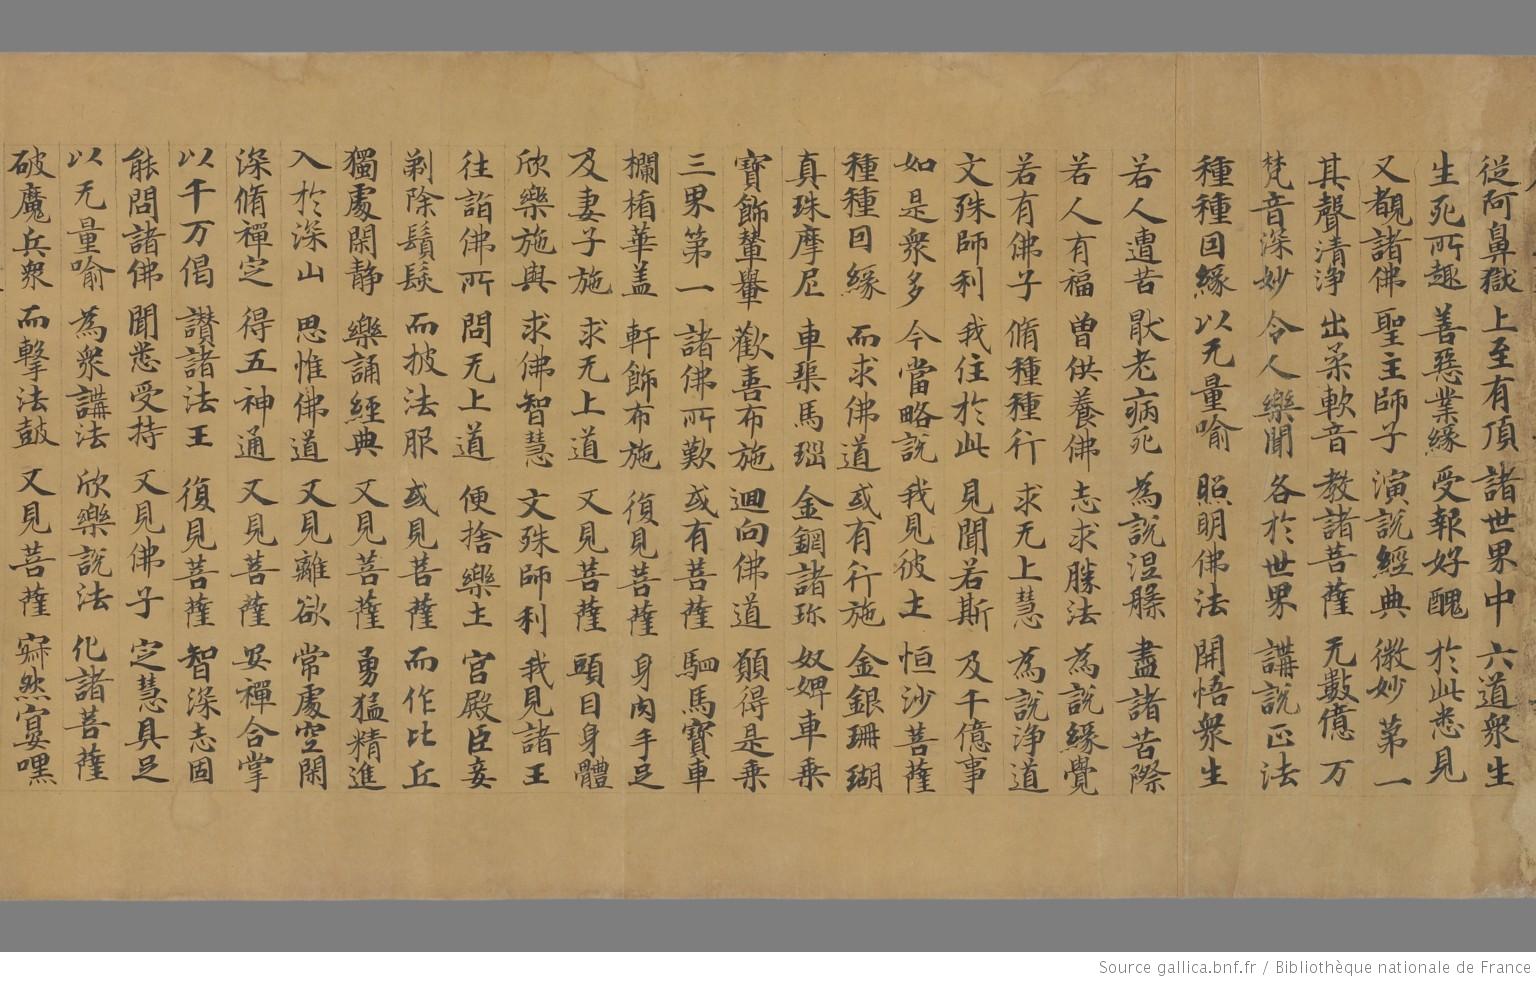 從阿鼻獄 上至有頂 諸世界中 六道衆生
生死所趣 善惡業緣 受報好醜 於此悉見
又覩諸佛 聖主師子 演說經典 微妙第一
其聲清淨 出柔軟音 教諸菩薩 无數億万
梵音深妙 令人樂聞 各於世界 講說正法
種種因緣 以无量喻 照明佛法 開悟衆生
若人遭苦 猒老病死 為說涅槃 盡諸苦際
若人有福 曾供養佛 志求勝法 為說緣覺
若有佛子 脩種種行 求无上慧 為說淨道
文殊師利 我住於此 見聞若斯 及千億事
如是衆多 今當略說 我見彼土 恒沙菩薩
種種因緣 而求佛道 或有行施 金銀珊瑚
真珠摩尼 車𤦲馬瑙 金鋼諸珎 奴婢車乘
寶飾輦轝 歡喜布施 迴向佛道 願得是乘
三界第一 諸佛所歎 或有菩薩 駟馬寶車
欄楯華盖 軒飾布施 復見菩薩 身肉手足
及妻子施 求无上道 又見菩薩 頭目身體
欣樂施與 求佛智慧 文殊師利 我見諸王
往詣佛所 問无上道 便捨樂土 宮殿臣妾
剃除鬚髮 而披法服 或見菩薩 而作比丘
獨處閑静 樂誦經典 又見菩薩 勇猛精進
入於深山 思惟佛道 又見離欲 常處空閑
深脩禪定 得五神通 又見菩薩 安禪合掌
以千万偈 讃諸法王 復見菩薩 智深志固
能問諸佛 聞悉受持 又見佛子 定慧具足
以无量喻 為衆講法 欣樂說法 化諸菩薩
破魔兵衆 而擊法鼓 又見菩薩 寂然宴嘿
Source gallica.bnf.fr / Bibliothèque nationale de France